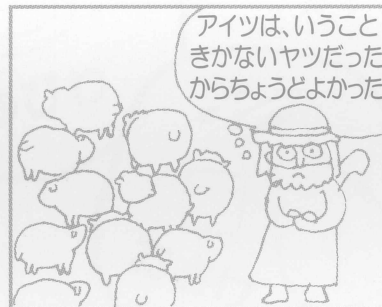 アイツは、いうこと
きかないヤツだった
からちょうどよかった